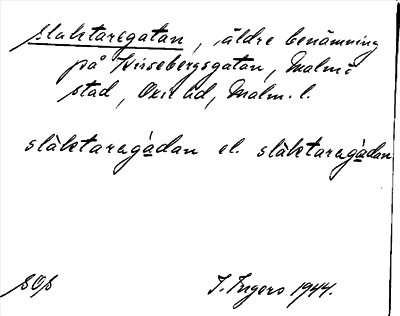 Slaktaregatan, äldre benämning
på Kirsebergsgatan, Malmö
stad, Oxie hd, Malm. l.
släktaragàdan el. släktaragàdan
I. Ingers 1944.